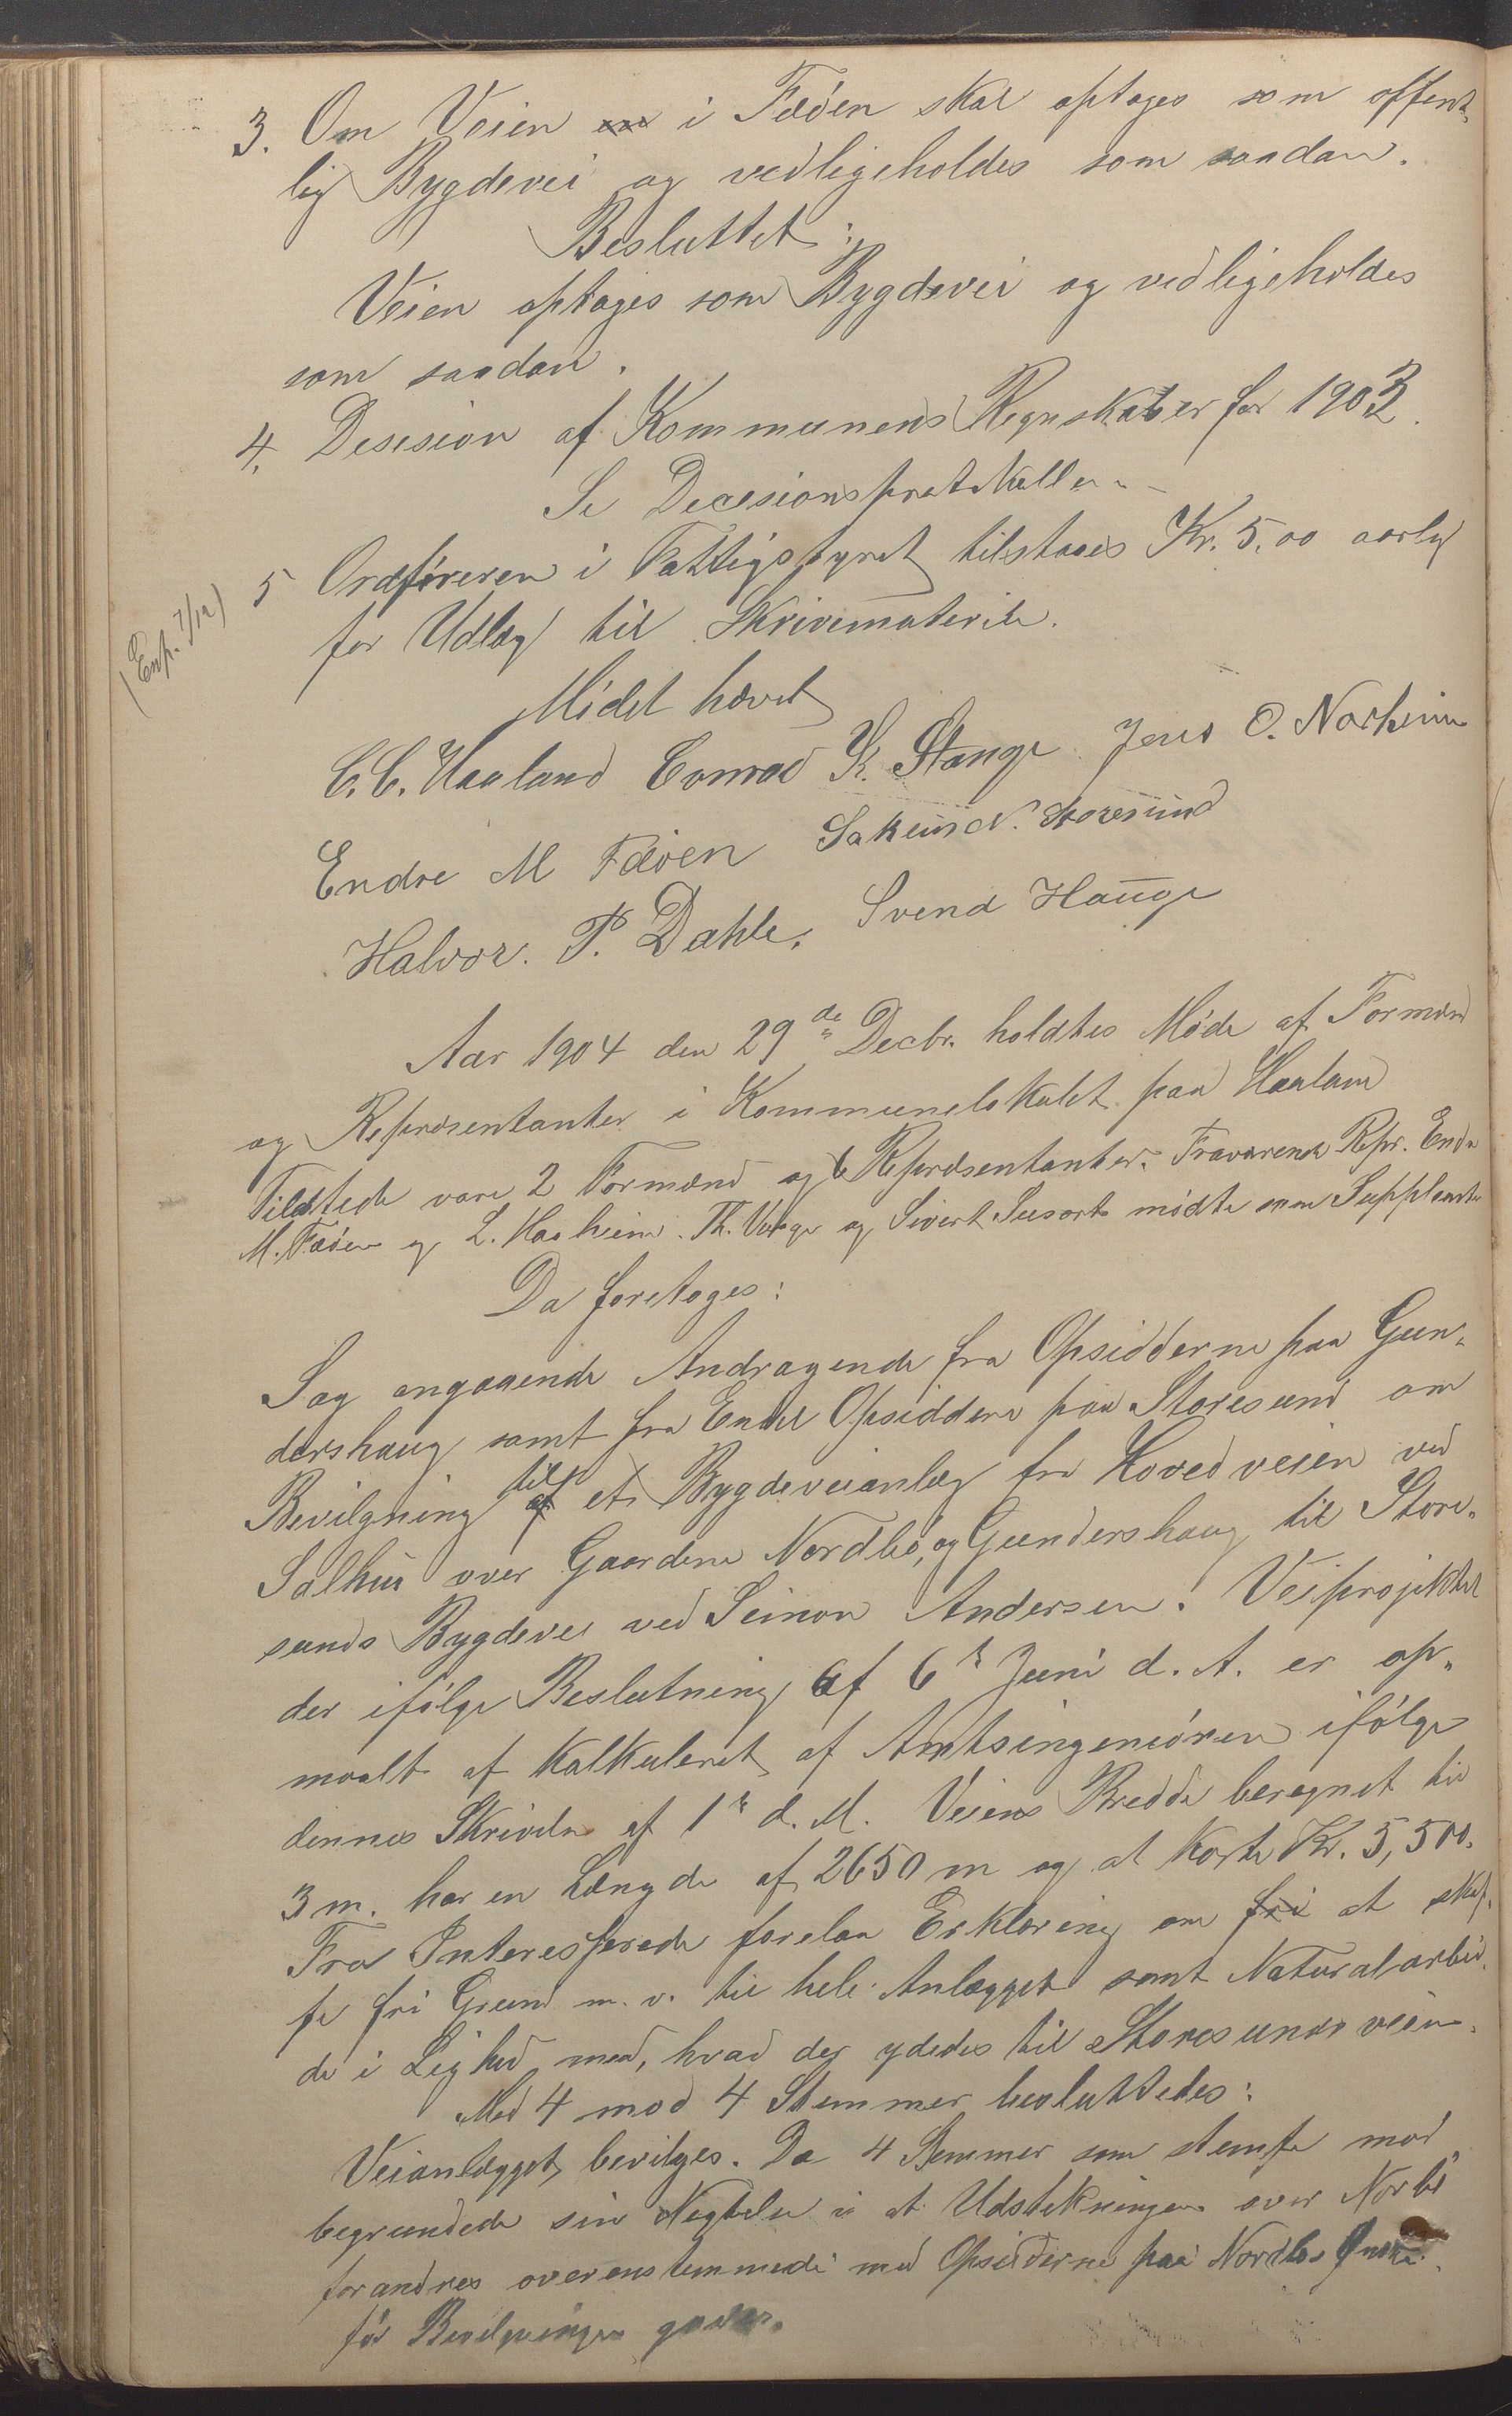 3. Om Veien i Fæøen skal optages som offent-
lig Bygdevei og vedligeholdes som saadan.
Besluttet:
Veien optages som Bygdevei og vedligeholdes
som saadan.
4. Desision af Kommunens Regnskaber for 1903.
Se Decesionsprotokollen
5 Ordføreren i Fattigstyret tilstaaes Kr. 5.00 aarlig
for Udlæg til Skrivematerile.
(Exp. 7/12)
Mødet hævet
C. C. Haaland Conrad K. Stange Jens O. Norheim
Endre M Fæøen Sakeus N. Storesund
Halvor. P. Dahle. Svend Hauge
Aar 1904 den 29de Decbr. holdtes Møde af Formænd
og Repræsentanter i Kommunelokalet paa Haaland
Tilstede vare 2 Formænd og 6 Repræsentanter. Fraværende Repr. Endre
M. Fæøen og L. Haaheim. Th. Vaage og Sivert Susort mødte som Supplanter
Da foretoges:
Sag angaaende Andragende fra Opsidderne paa Gun-
dershaug samt fra Endel Opsiddere paa Storesund om
Bevilgning til et Bygdeveianlæg fra Hovedveien ved
Salhus over Gaardene Nordbø, og Gundershaug til Store-
sunds Bygdevei ved Seimon Andersen. Veiprojektet
der ifølge Beslutning af 6te Juni d. A. er op-
maalt af Kalkuleret af Amtsingeniøren ifølge
dennes Skrivelse af 1te d. M. Veiens Bredde beregnet til
3 m. har en Længde af 2650 m og at koste Kr. 5,500.
Fra Interesserede forelaa Erklæring om fri at skaf-
fe fri Grund m. v. til hele Anlægget samt Naturalarbei-
de i Lighed med, hvad der ydedes til Storesundsveien.
Med 4 mod 4 Stemmer besluttedes:
Veianlægget bevilges. De 4 Stemmer som stemte mod
begrundede sin Negtelse i at Udstikningen over Norbø
forandres overenstemmende med Opsidderne paa Nordbøs Ønske
før Bevilgningen gives.